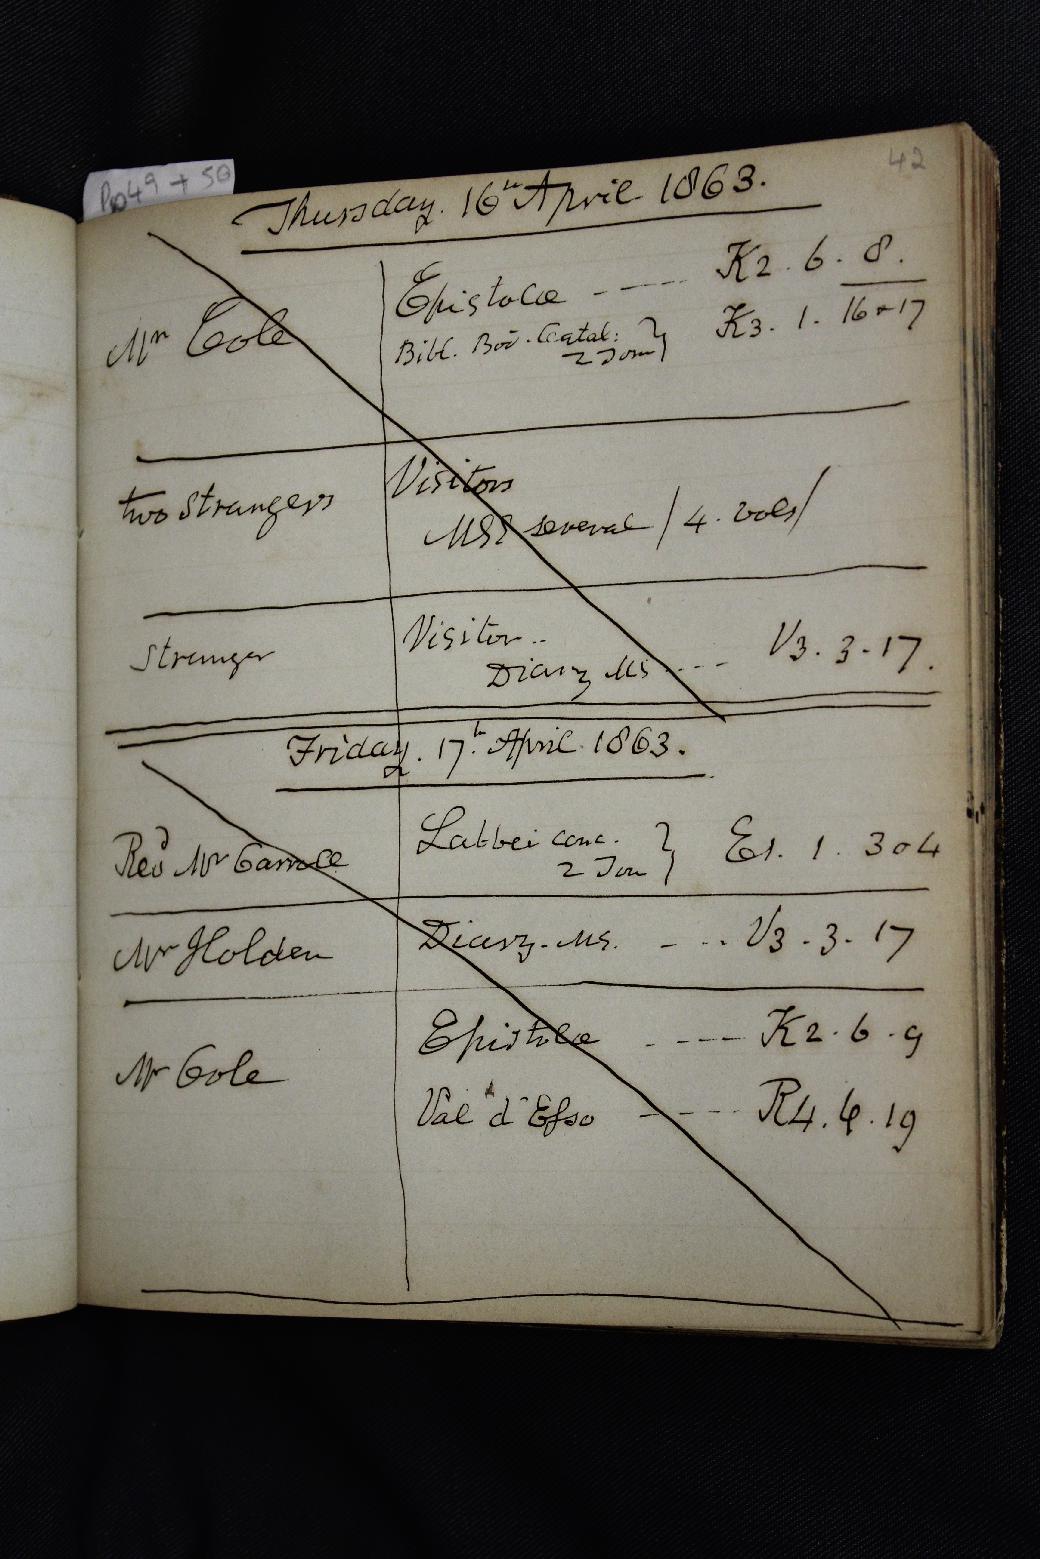 Pp 49 + 50
42
Thursday. 16th April 1863.
Mr Cole
Epistolæ - - - - K2. 6. 8.
Bibl. Catal: 2 Tom } K3. 1. 16 + 17
two Strangers
Visitors
MSS several / 4. vols /
Stranger
Visitor..
Diary MS - - - V3. 3. 17.
Friday. 17th. April. 1863.
Revd Mr
Labbei conc. 2 Tom } E1. 1. 3 & 4
Mr Holden
Diary. MS. - - - V3. 3. 17
Mr Cole
Epistolæ - - - - K2. 6. 9
Val d'Esso - - - - R4. 6. 19